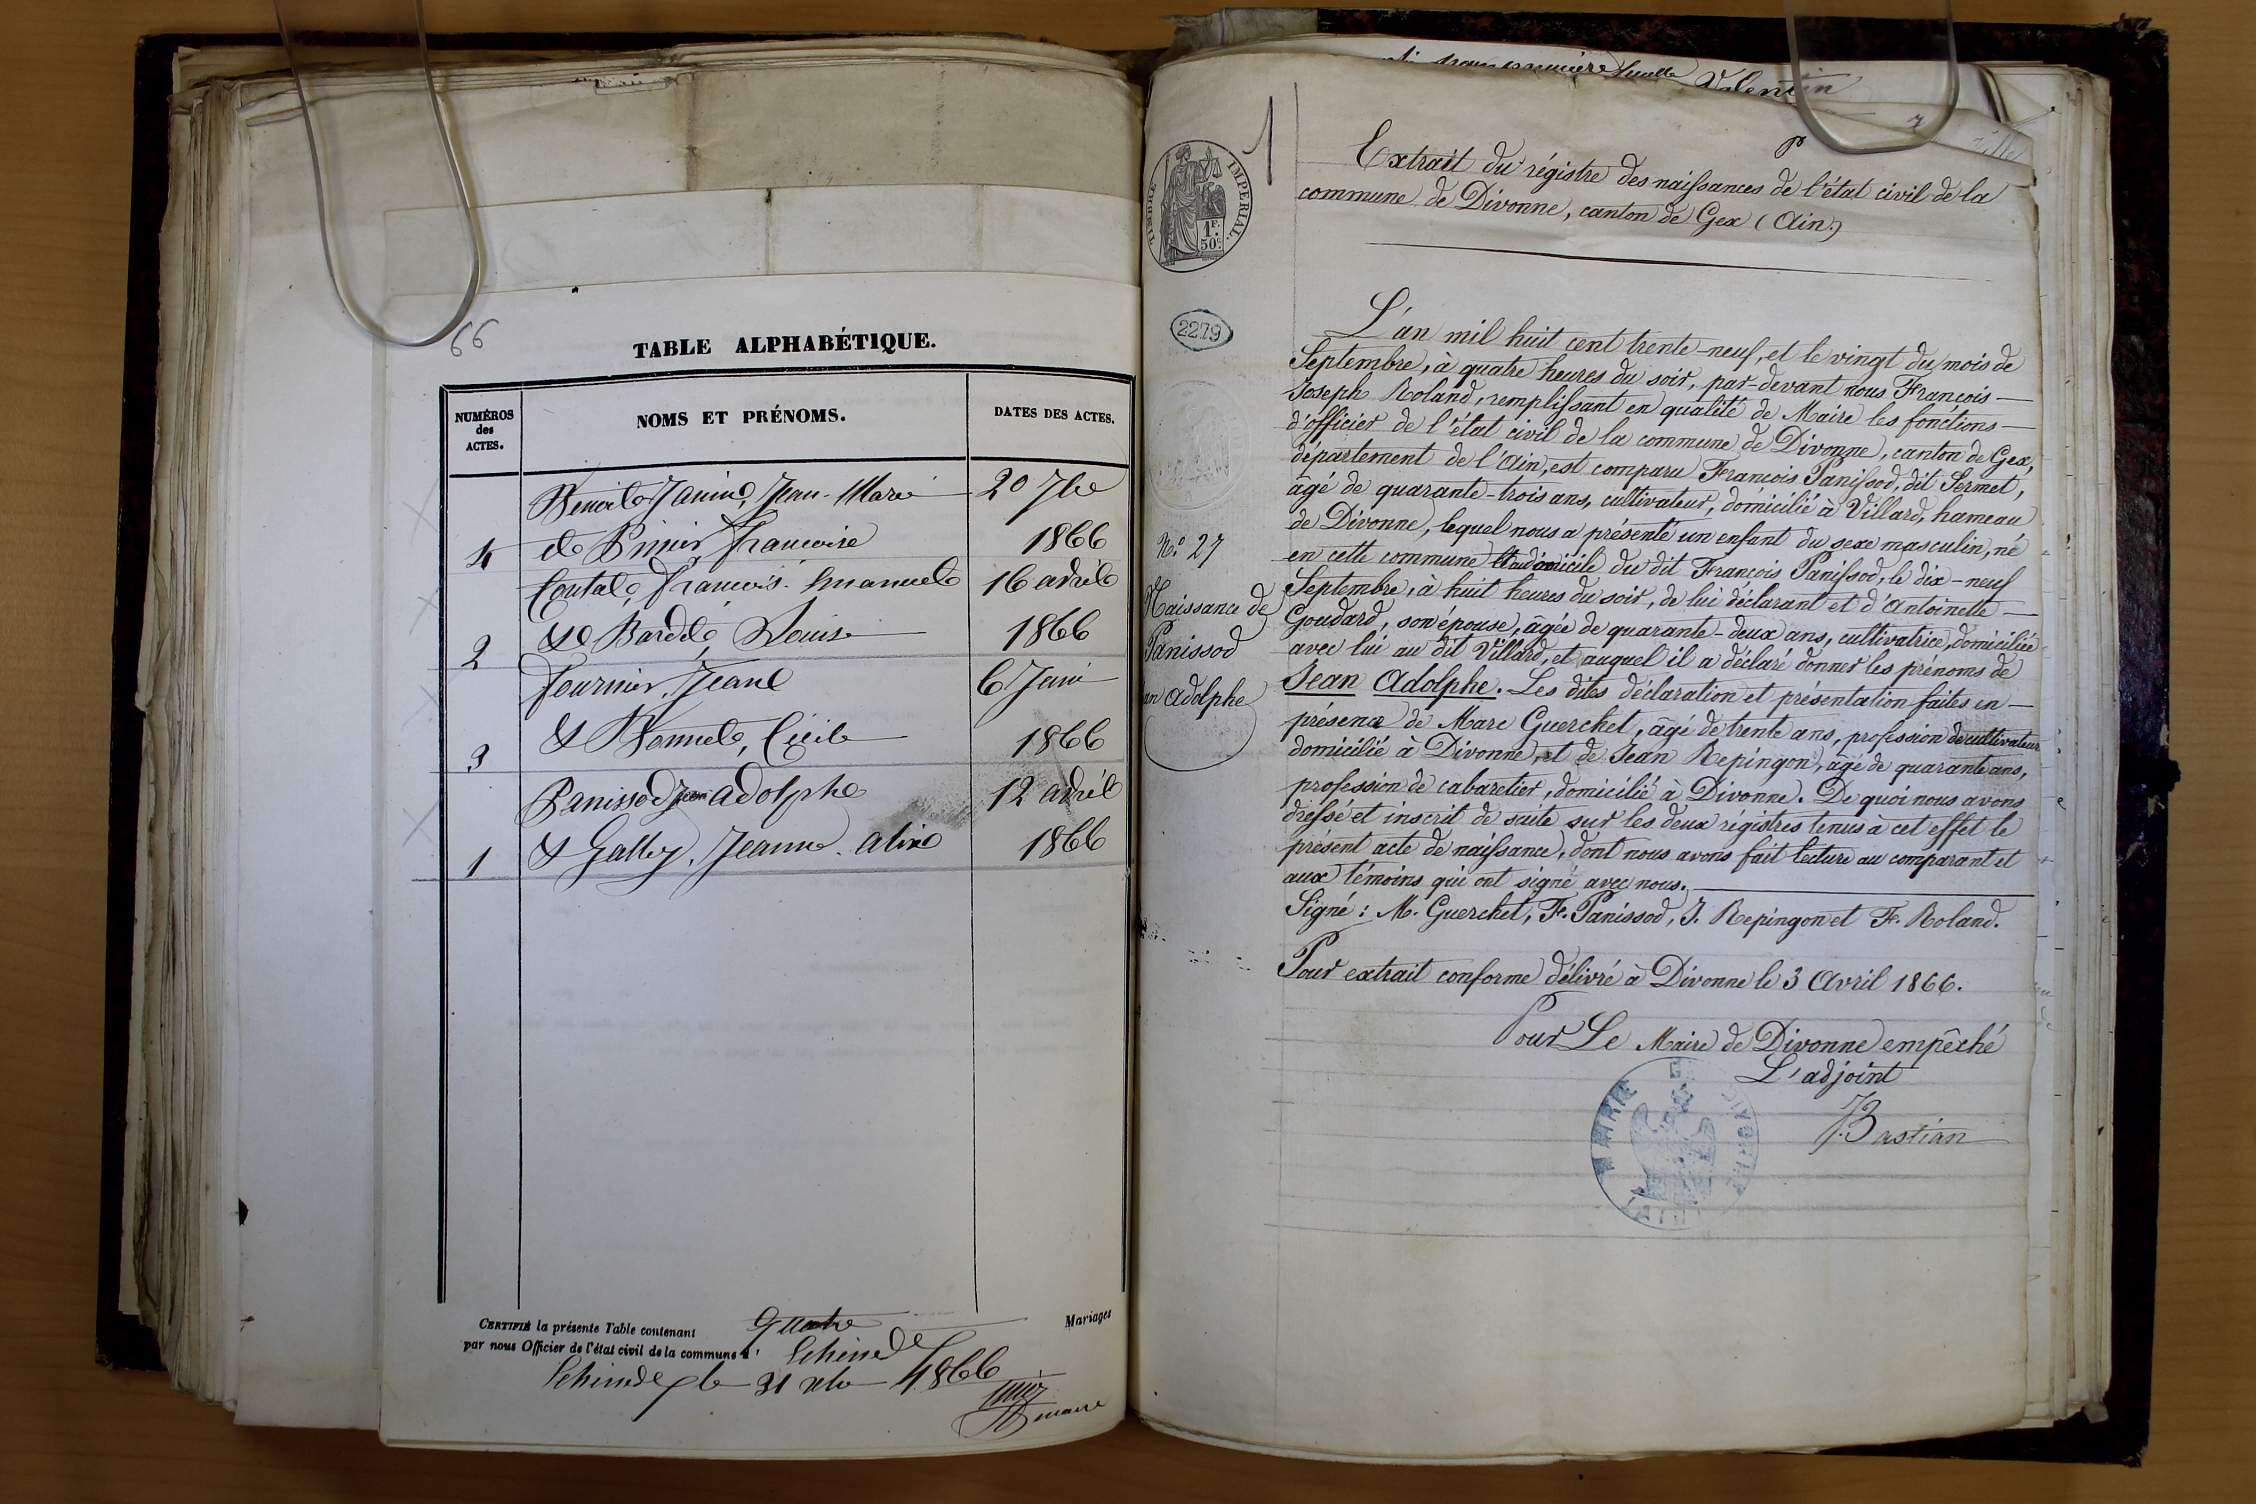 66
TABLE ALPHABÉTIQUE.
NUMÉROS des ACTES.
NOMS ET PRÉNOMS.
DATES DES ACTES.
Benoit Janin, Jean-Marie 20 7bre
4 et Françoise 1866
Coutat, François-Emanuel 16 avril
2 et Bardet, Louise 1866
Fournier, Jean 6 Juin
3 et Cécile 1866
Panissod Jean adolphe 12 avril
1 et Galley, Jeanne aline 1866
CERTIFIÉ la présente Table contenant quatre Mariages
par nous Officier de l'état civil de la commune d'Echenevex
Echenevex le 31 xbre 1866
maire
Valentin
1
TIMBRE IMPÉRIAL.
1F.
50c.
Extrait du régistre des naissances de l'état civil de la
commune de Divonne, canton de Gex (Ain.)
2279
L'an mil huit cent trente-neuf, et le vingt du mois de
Septembre, à quatre heures du soir, par-devant nous François-
Joseph Roland, remplissant en qualité de Maire les fonctions
d'officier de l'état civil de la commune de Divonne, canton de Gex,
département de l'Ain, est comparu François Panissod, dit Sermet,
âgé de quarante-trois ans, cultivateur, domicilié à Villard, hameau
de Divonne, lequel nous a présenté un enfant du sexe masculin, né
en cette commune au domicile du dit François Panissod, le dix-neuf
Septembre, à huit heures du soir, de lui déclarant et d'Antoinette
Goudard, son épouse, âgée de quarante-deux ans, cultivatrice, domiciliée
avec lui au dit Villard, et auquel il a déclaré donner les prénoms de
Jean Adolphe. Les dites déclaration et présentation faites en
présence de Marc Guerchet, âgé de trente ans, profession de cultivateur
domicilié à Divonne, et de Jean Repingon, âgé de quarante ans,
profession de cabaretier, domicilié à Divonne. De quoi nous avons
dressé et inscrit de suite sur les deux régistres tenus à cet effet le
présent acte de naissance, dont nous avons fait lecture au comparant et
aux témoins qui ont signé avec nous.
Signé: M. Guerchet, F. Panissod, J. Repingon et F. Roland.
N.o 27
Naissance de
Panissod
an Adolphe
Pour extrait conforme délivré à Divonne le 3 Avril 1866.
Pour Le Maire de Divonne empêché
L'adjoint
J. Bastian
MAIRIE